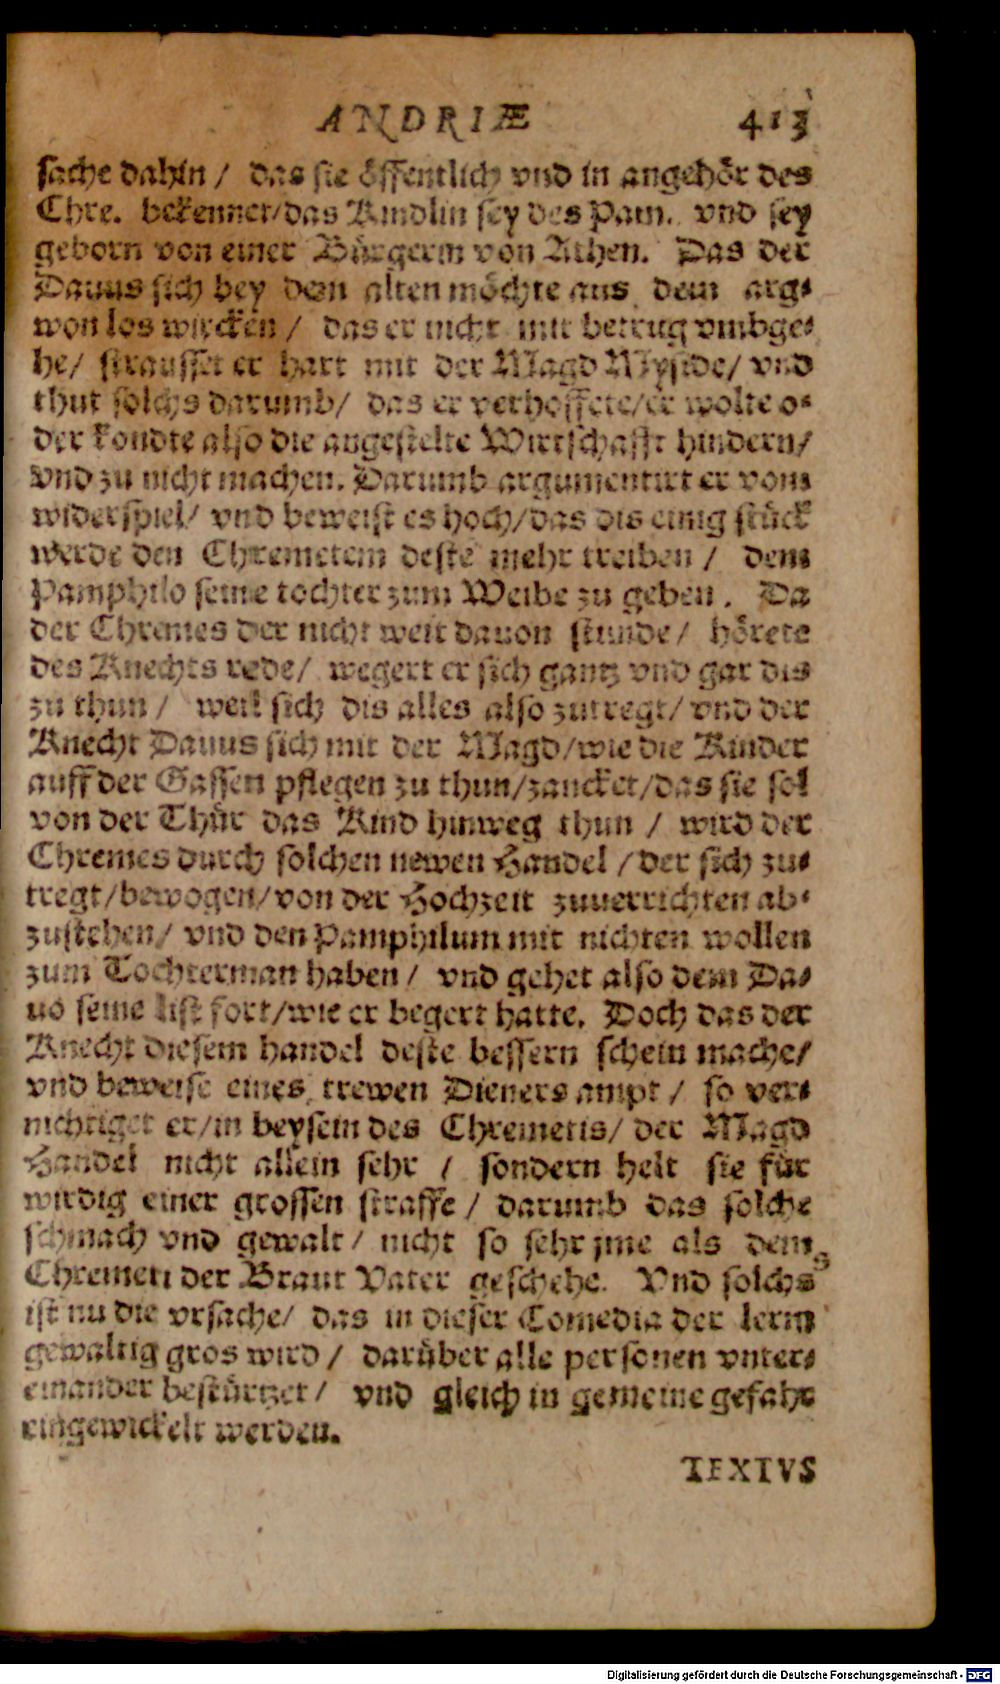 ANDRIÆ 413
sache dahin / das sie öffentlich vnd in angehör des
Chre. bekennet/das Kindlin sey des Pam. vnd sey
geborn von einer Bürgerin von Athen. Das der
Dauus sich bey dem alten möchte aus dem arg⸗
won los wircken / das er nicht mit betrug vmbge⸗
he/ strausset er hart mit der Magd Myside/ vnd
thut solchs darumb/ das er verhoffete/er wolte o⸗
der kondte also die angestelte Wirtschafft hindern/
vnd zu nicht machen. Darumb argumentirt er vom
widerspiel/ vnd beweist es hoch/das dis einig stück
werde den Chremetem deste mehr treiben / dem
Pamphilo seine tochter zum Weibe zu geben. Da
der Chremes der nicht weit dauon stunde/ hörete
des Knechts rede/ wegert er sich gantz vnd gar dis
zu thun / weil sich dis alles also zutregt/ vnd der
Knecht Dauus sich mit der Magd/wie die Kinder
auff der Gassen pflegen zu thun/zancket/das sie sol
von der Thür das Kind hinweg thun / wird der
Chremes durch solchen newen Handel /der sich zu⸗
tregt/bewogen/von der Hochzeit zuuerrichten ab⸗
zustehen/ vnd den Pamphilum mit nichten wollen
zum Tochterman haben / vnd gehet also dem Da⸗
uo seine list fort/wie er begert hatte. Doch das der
Knecht diesem handel deste bessern schein mache/
vnd beweise eines trewen Dieners ampt / so ver⸗
nichtiget er/in beysein des Chremetis/ der Magd
Handel nicht allein sehr / sondern helt sie für
wirdig einer grossen straffe / darumb das solche
schmach vnd gewalt / nicht so sehr jme als dem
Chremeti der Braut Vater geschehe. Vnd solchs
ist nu die vrsache/ das in dieser Comedia der lerm
gewaltig gros wird / darüber alle personen vnter⸗
einander bestürtzet / vnd gleich in gemeine gefahr
eingewickelt werden.
TEXTVS
Digitalisierung gefördert durch die Deutsche Forschungsgemeinschaft - DFG